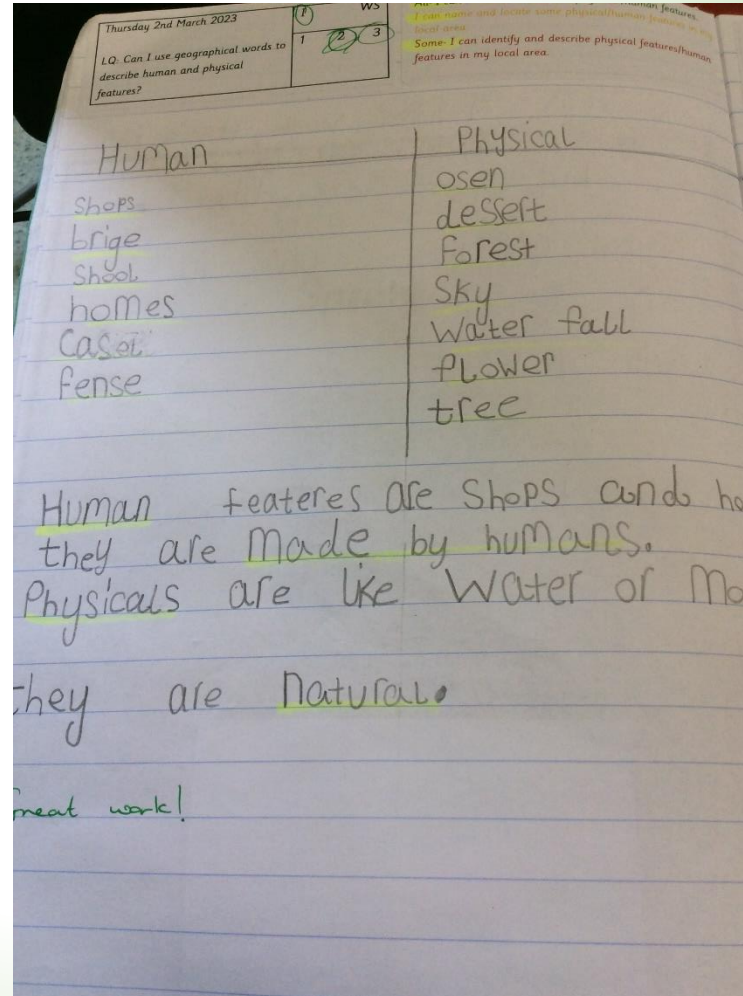 Thursday 2nd March 2023
LQ: Can I use geographical words to
describe human and physical
features?
1
WS
1 2 3
human features.
I can name and locate some physical/human features in my
local area.
Some- I can identify and describe physical features/human
features in my local area.
Human
Physical
shops
osen
brige
dessert
shool
forest
homes
sky
casel
water fall
fense
flower
tree
Human feateres are shops and ho
they are made by humans.
Physicals are like water or mo
they are natural.
Great work!